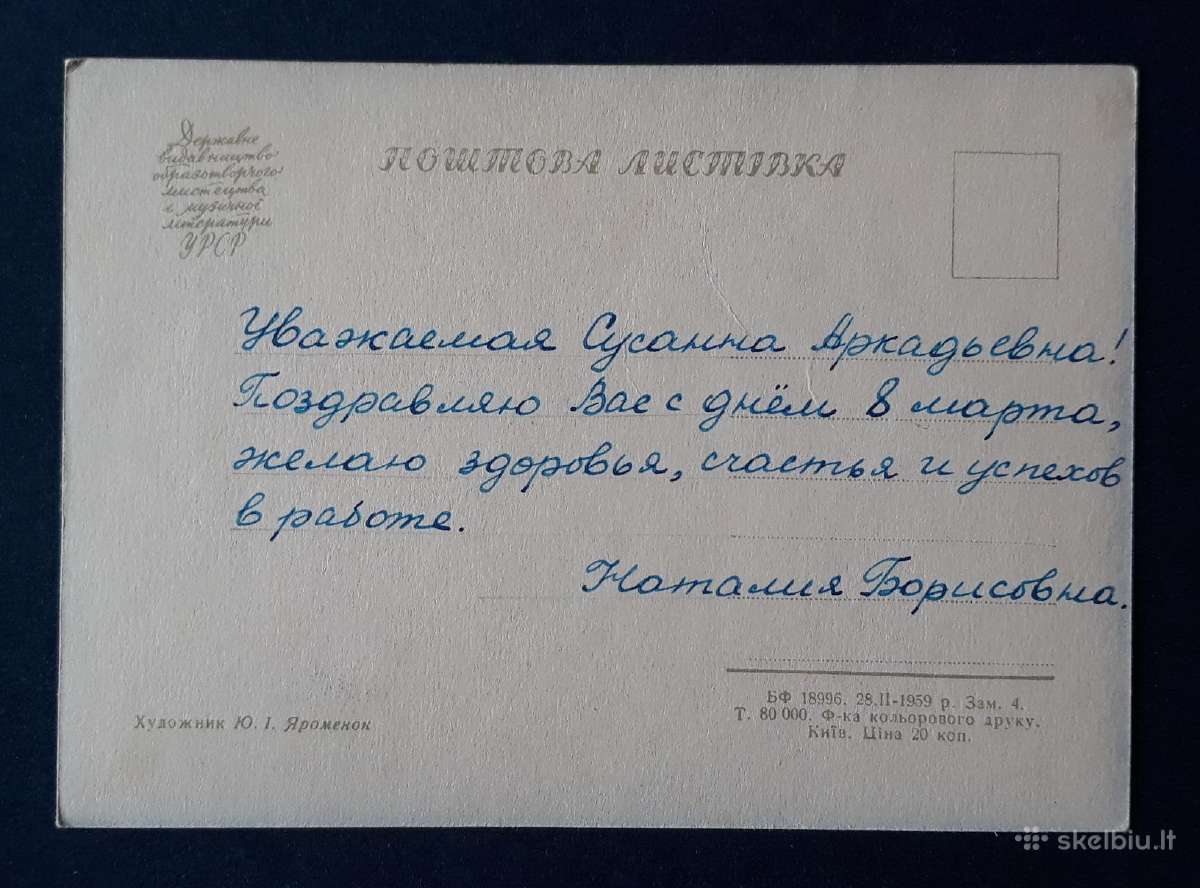 Державне
видавництво
образотворчого
мистецтва
і музичної
літератури
УРСР
ПОШТОВА ЛИСТІВКА
Уважаемая Сусанна Аркадьевна!
Поздравляю Вас с днём 8 марта,
желаю здоровья, счастья и успехов
в работе.
Наталия Борисовна.
Художник Ю. І. Яроменок
БФ 18996. 28.II-1959 р. Зам. 4.
Т. 80 000. Ф-ка кольорового друку.
Київ. Ціна 20 коп.
skelbiu.lt